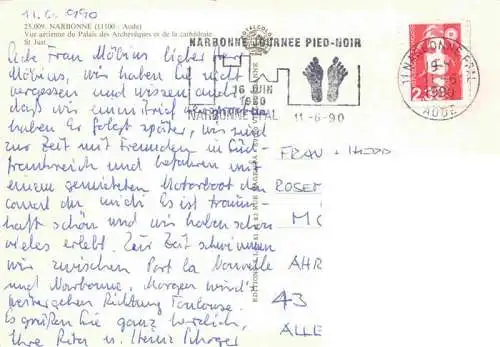 11.6.1990
25.009. NARBONNE (11100 - Aude)
Vue aérienne du Palais des Archevêques et de la cathédrale
St Just
Liebe Frau Möbius, lieber Herr
Möbius, wir haben Sie nicht
vergessen und wissen auch
daß wir einen Brief versprochen
haben. Er folgt später, wir sind
zur Zeit mit Freunden in Süd-
frankreich und befahren mit
einem gemieteten Motorboot den
canal du midi. Es ist traum-
haft schön und wir haben schon
vieles erlebt. Zur Zeit schwimmen
wir zwischen Port la Nouvelle
und Narbonne. Morgen wird's
weitergehen Richtung Toulouse.
Es grüßen Sie ganz herzlich,
Ihre Rita u. Heinz
NARBONNE JOURNEE PIED-NOIR
16 JUIN
1990
NARBONNE PPAL 11-6-90
11 NARBONNE PPAL
1990
AUDE
FRAU + HERR
ROSE
MO
AHR
43
ALLE